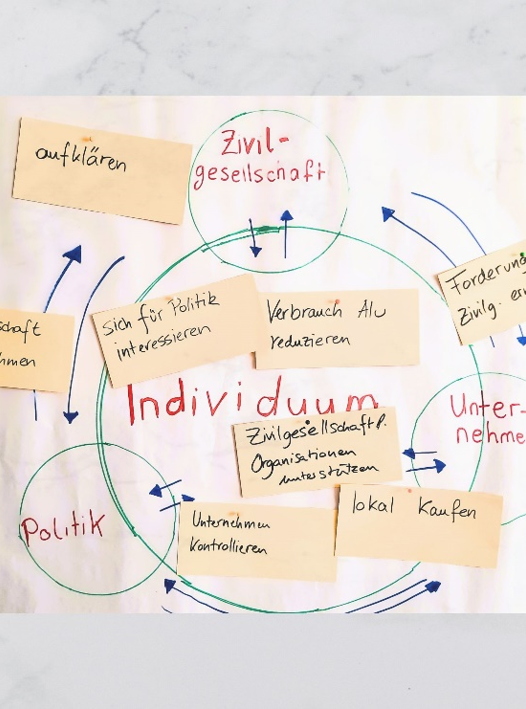 aufklären
Zivil-
gesellschaft
Forderung
Zivilg.
schaft
hmen
Sich für Politik
interessieren
Verbrauch Alu
reduzieren
Individuum
Unter-
nehme
Zivilgesellschaftl.
Organisationen
unterstützen
lokal kaufen
Politik
Unternehmen
Kontrollieren